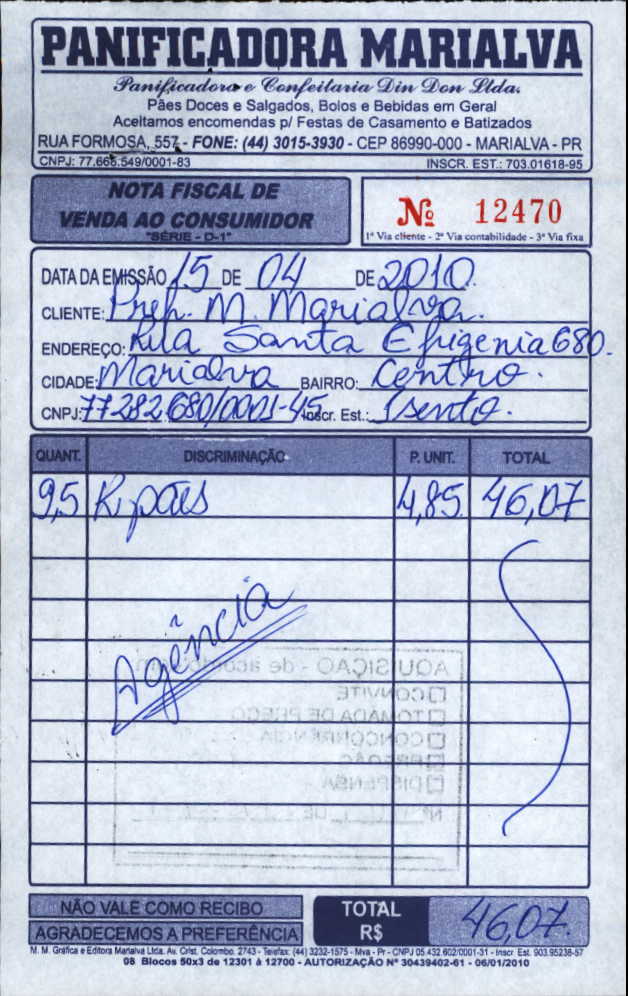 PANIFICADORA MARIALVA
Panificadora e Confeitaria Din Don Ltda.
Pães Doces e Salgados, Bolos e Bebidas em Geral
Aceitamos encomendas p/ Festas de Casamento e Batizados
RUA FORMOSA, 557 - FONE: (44) 3015-3930 - CEP 86990-000 - MARIALVA - PR
CNPJ: 77.666.549/0001-83 INSCR. EST.: 703.01618-95
NOTA FISCAL DE
VENDA AO CONSUMIDOR
"SÉRIE - D-1"
Nº 12470
1ª Via cliente - 2ª Via contabilidade - 3ª Via fixa
DATA DA EMISSÃO 15 DE 04 DE 2010
CLIENTE: Pref. M. Marialva.
ENDEREÇO: Rua Santa Efigenia 680.
CIDADE: Marialva BAIRRO: Centro.
CNPJ: 77.282.680/0001-45 Inscr. Est.: Isento.
QUANT. DISCRIMINAÇÃO P. UNIT. TOTAL
9,5 K pães 4,85 46,07
Agência
AQUISIÇÃO - de acordo
CONVITE
TOMADA DE PREÇO
CONCORRÊNCIA
PREGÃO
DISPENSA
Nº DE
NÃO VALE COMO RECIBO
AGRADECEMOS A PREFERÊNCIA
TOTAL
R$ 46,07.
M. M. Gráfica e Editora Marialva Ltda. Av. Crist. Colombo, 2743 - Telefax: (44) 3232-1575 - Mva - Pr - CNPJ 05.432.602/0001-31 - Inscr. Est. 903.95238-57
08 Blocos 50x3 de 12301 à 12700 - AUTORIZAÇÃO Nº 30439402-61 - 06/01/2010